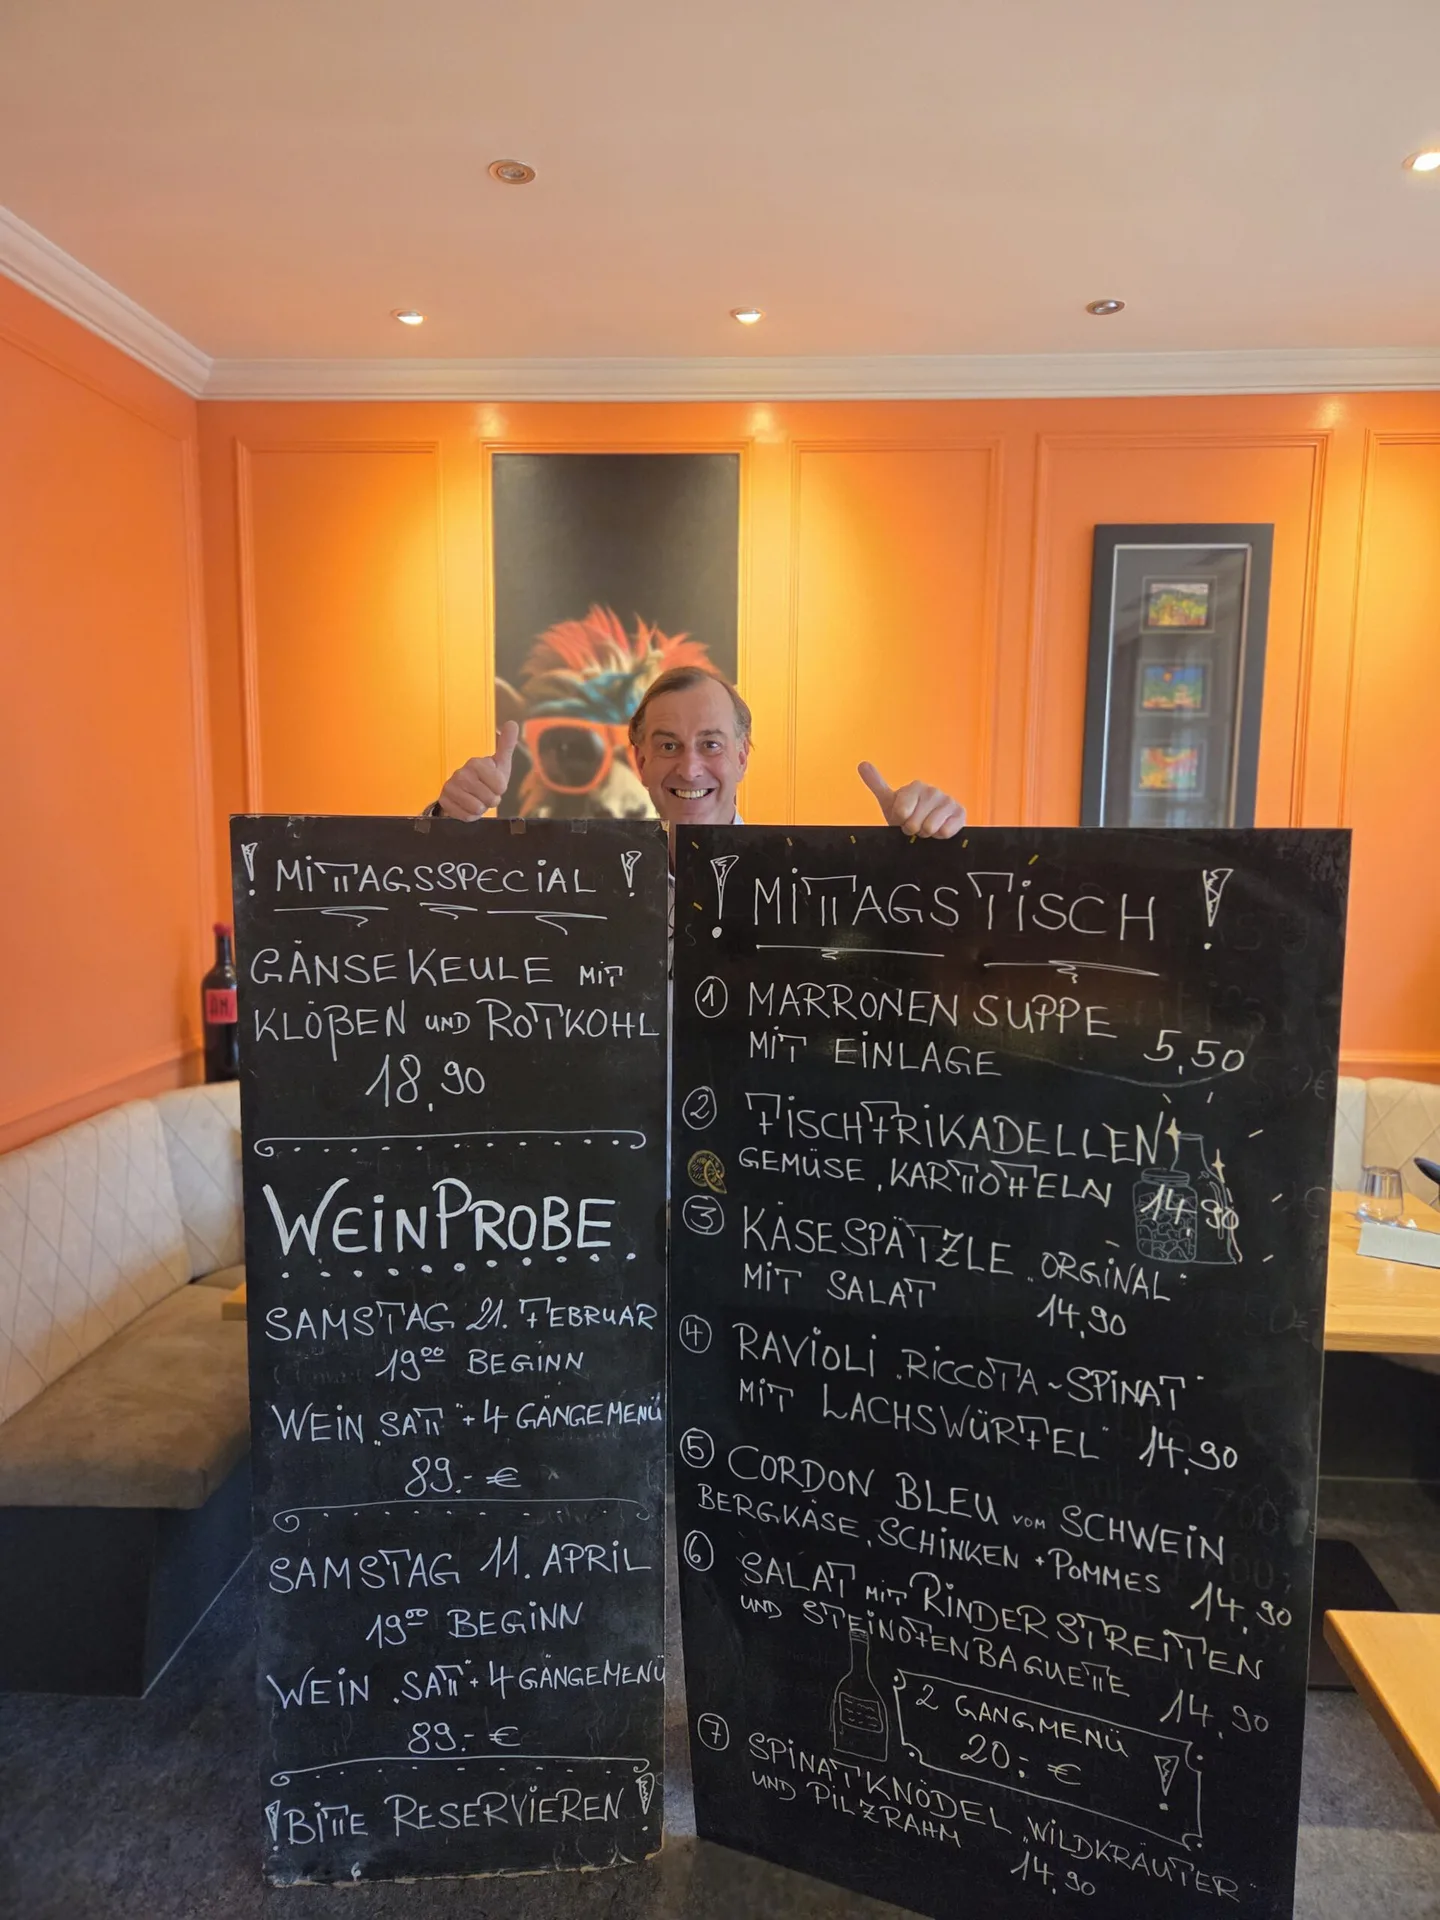 ! MITTAGSSPECIAL !
GÄNSEKEULE MIT
KLÖßEN UND ROTKOHL
18,90
WEINPROBE
SAMSTAG 21. FEBRUAR
19⁰⁰ BEGINN
WEIN „SATT“ + 4 GÄNGEMENÜ
89.- €
SAMSTAG 11. APRIL
19⁰⁰ BEGINN
WEIN „SATT“ + 4 GÄNGEMENÜ
89.- €
! BITTE RESERVIEREN !
! MITTAGSTISCH !
① MARRONENSUPPE
MIT EINLAGE 5,50
② FISCHFRIKADELLEN
GEMÜSE, KARTOFFELN 14,90
③ KÄSESPÄTZLE „ORGINAL“
MIT SALAT 14,90
④ RAVIOLI „RICCOTA-SPINAT“
MIT LACHSWÜRFEL 14,90
⑤ CORDON BLEU VOM SCHWEIN
BERGKÄSE, SCHINKEN + POMMES 14,90
⑥ SALAT MIT RINDERSTREIFEN
UND STEINOFENBAGUETTE 14,90
2 GANGMENÜ
20.- € !
⑦ SPINATKNÖDEL „WILDKRÄUTER“
UND PILZRAHM 14,90